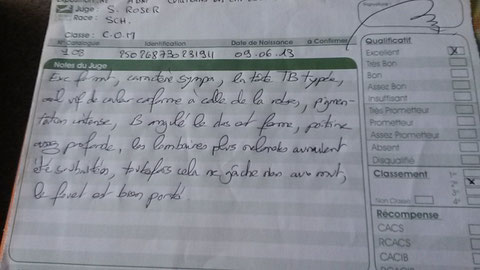 Juge : S. ROSER
Race : SCH.
Signature :
Classe : C.O.M
N° Catalogue Identification Date de Naissance à Confirmer
250268730231911 09.06.13
Notes du Juge
Exc fmt, caractère sympa, la tête TB typée,
oeil vif de couleur conforme à celle de la robe, pigmen-
tation intense, B angulé le dos est ferme, poitrine
assez profonde, les lombaires plus relevées auraient
été souhaitées, toutefois cela ne gâche rien au mvt,
le fouet est bien porté.
Qualificatif
Excellent x
Très Bon
Bon
Assez Bon
Insuffisant
Très Prometteur
Prometteur
Assez Prometteur
Absent
Disqualifié
Classement
Non Classé
Récompense
CACS
RCACS
CACIB